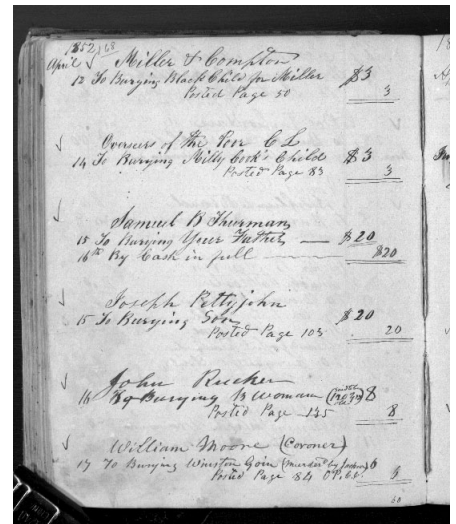 1852 68
April Miller & Compton
12 To Burying Black Child for Miller $3
Posted Page 50 3
Overseers of the Poor C L
14 To Burying Milly Cook's Child $3
Posted Page 83 3
Samuel B Thurman
15 To Burying Your Father — $20
16th By Cash in full — $20
Joseph Pettyjohn
15 To Burying Son $20
Posted Page 103 20
John Rucker
16 Burying B Woman 8
Posted Page 145 8
William Moore (Coroner)
17 To Burying Winston Goin (murdered by Jackson)
Posted Page 84 3